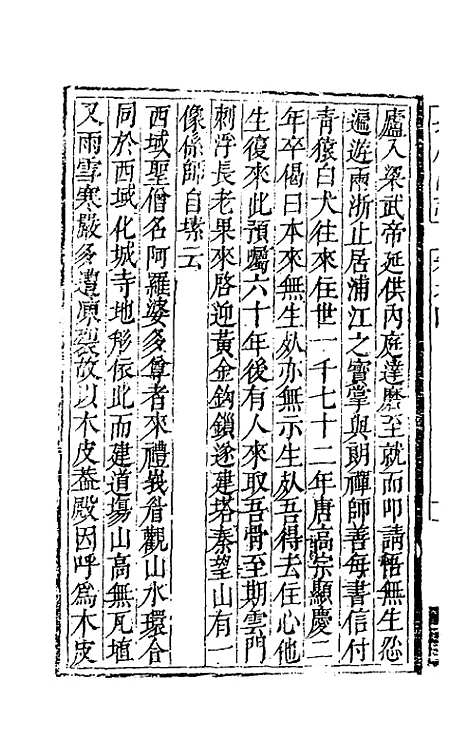 廬入梁武帝延供內庭達磨至就而叩請悟無生忍
遍遊兩浙止居浦江之寶掌與朗禪師善每書信付
青猿白犬往來住世一千七十二年唐高宗顯慶二
年卒偈曰本來無生死亦無示生死吾得去住心他
生復來此預囑六十年後有人來取吾骨至期雲門
刺浮長老果來啓迎黃金鈎鎖遂建塔秦望山有一
像係師自塐云
西域聖僧名阿羅婆多尊者來禮峩眉觀山水環合
同於西域化城寺地形依此而建道塲山高無瓦埴
又雨雪寒嚴多遭凍裂故以木皮葢殿因呼為木皮